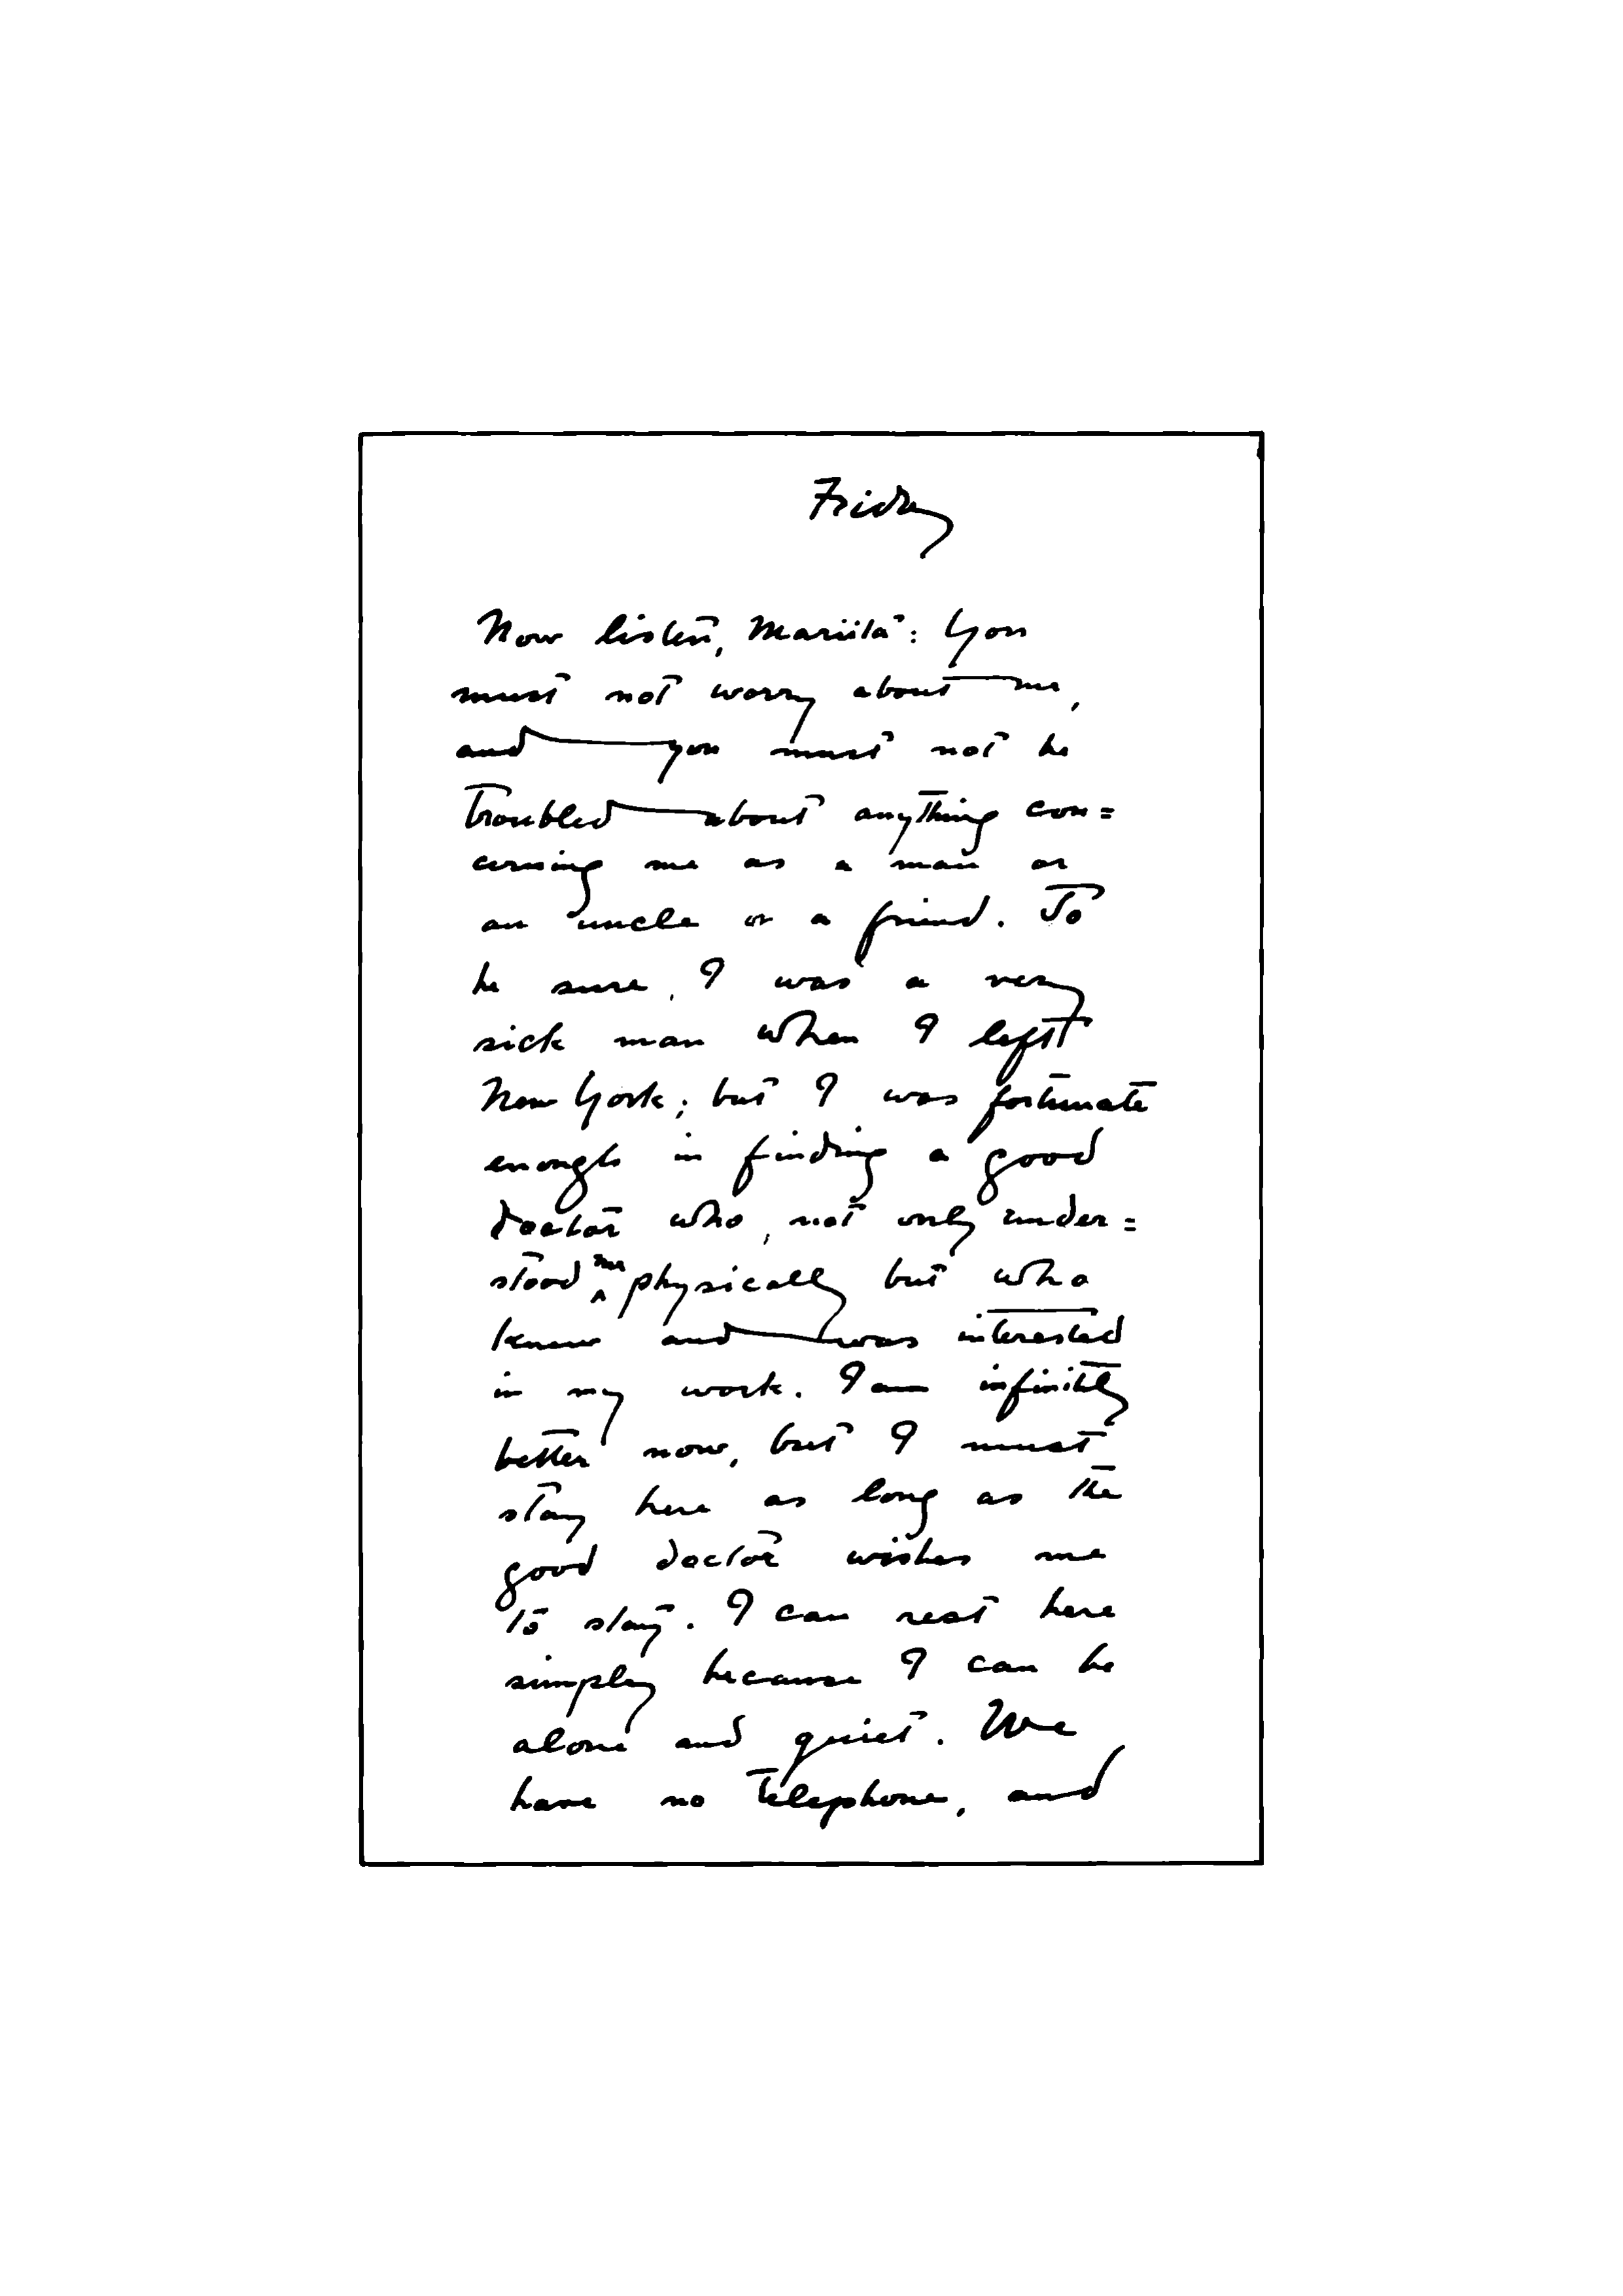 Friday
Now listen, Mariita: You
must not worry about me,
and you must not be
troubled about anything con=
cerning me as a man or
an uncle or a friend. To
be sure, I was a very
sick man when I left
New York; but I was fortunate
enough in finding a good
doctor who, not only under=
stood me physically but who
knew and was interested
in my work. I am infinitely
better now, but I must
stay here as long as the
good doctor wishes me
to stay. I can rest here
simply because I can be
alone and quiet. We
have no telephone, and